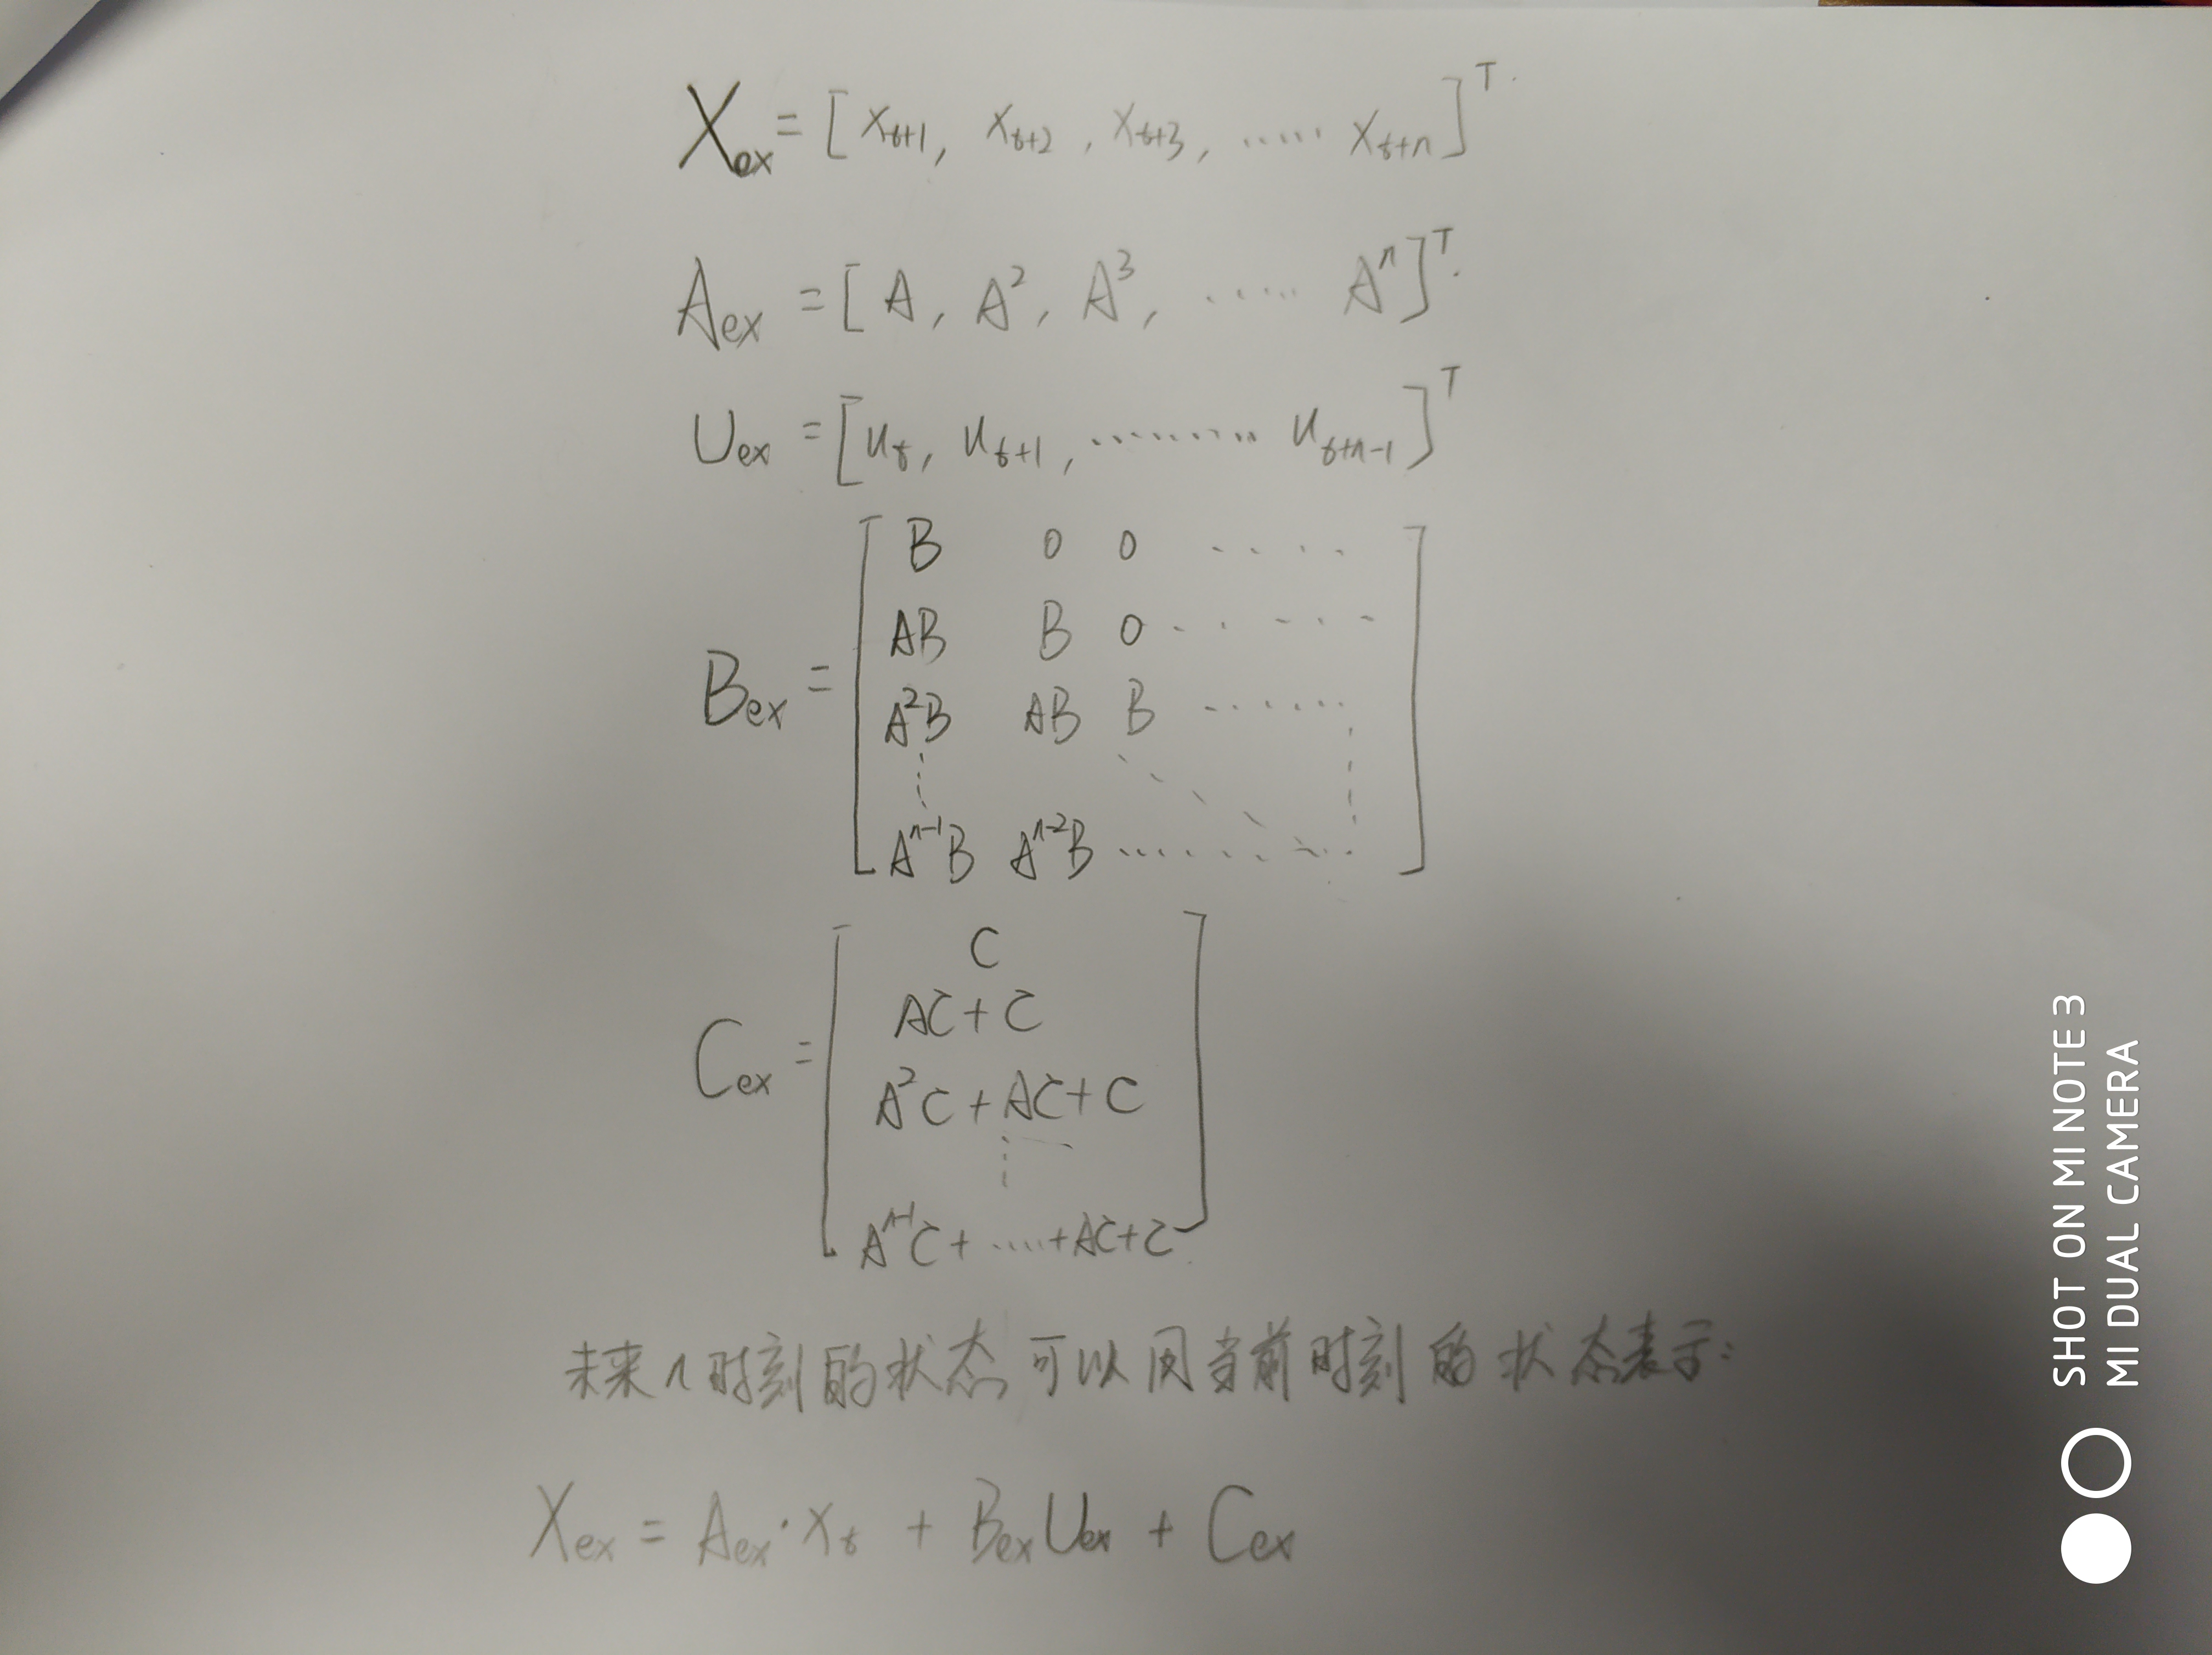 Xex = [ x_{t+1}, x_{t+2}, x_{t+3}, ...... x_{t+n} ]^T.
Aex = [ A, A^2, A^3, ..... A^n ]^T.
Uex = [ u_t, u_{t+1}, ......... u_{t+n-1} ]^T
Bex =
B 0 0 ....
AB B 0 ......
A^2B AB B ......
A^{n-1}B A^{n-2}B ........
Cex =
C
AC + C
A^2C + AC + C
A^{n-1}C + ..... + AC + C
未来n时刻的状态,可以用当前时刻的状态表示:
Xex = Aex · x_t + BexUex + Cex
SHOT ON MI NOTE 3
MI DUAL CAMERA